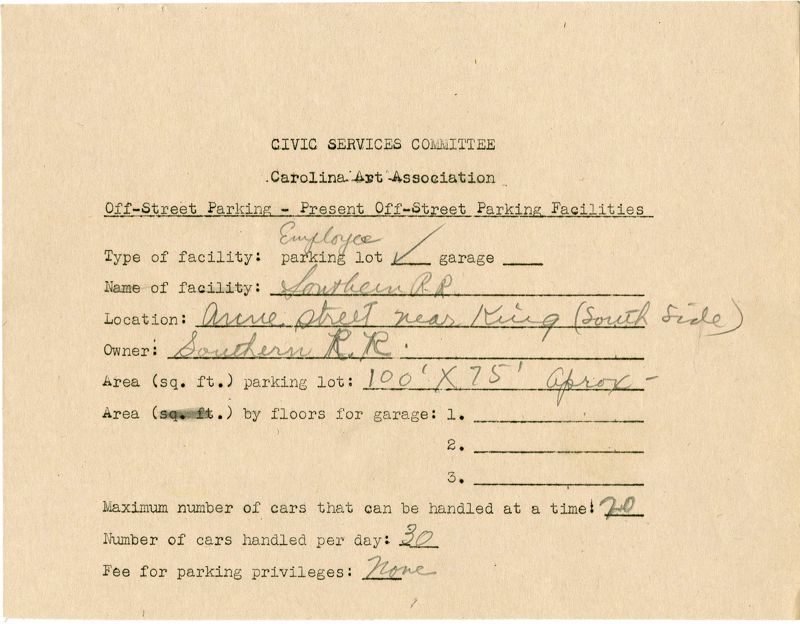 CIVIC SERVICES COMMITTEE
Carolina Art Association
Off-Street Parking - Present Off-Street Parking Facilities
Employee
Type of facility: parking lot ✓ garage ____
Name of facility: Southern R.R.
Location: Anne street near King (South Side)
Owner: Southern R.R.
Area (sq. ft.) parking lot: 100' X 75' Aprox-
Area (sq. ft.) by floors for garage: 1. ____
2. ____
3. ____
Maximum number of cars that can be handled at a time: 20
Number of cars handled per day: 30
Fee for parking privileges: None